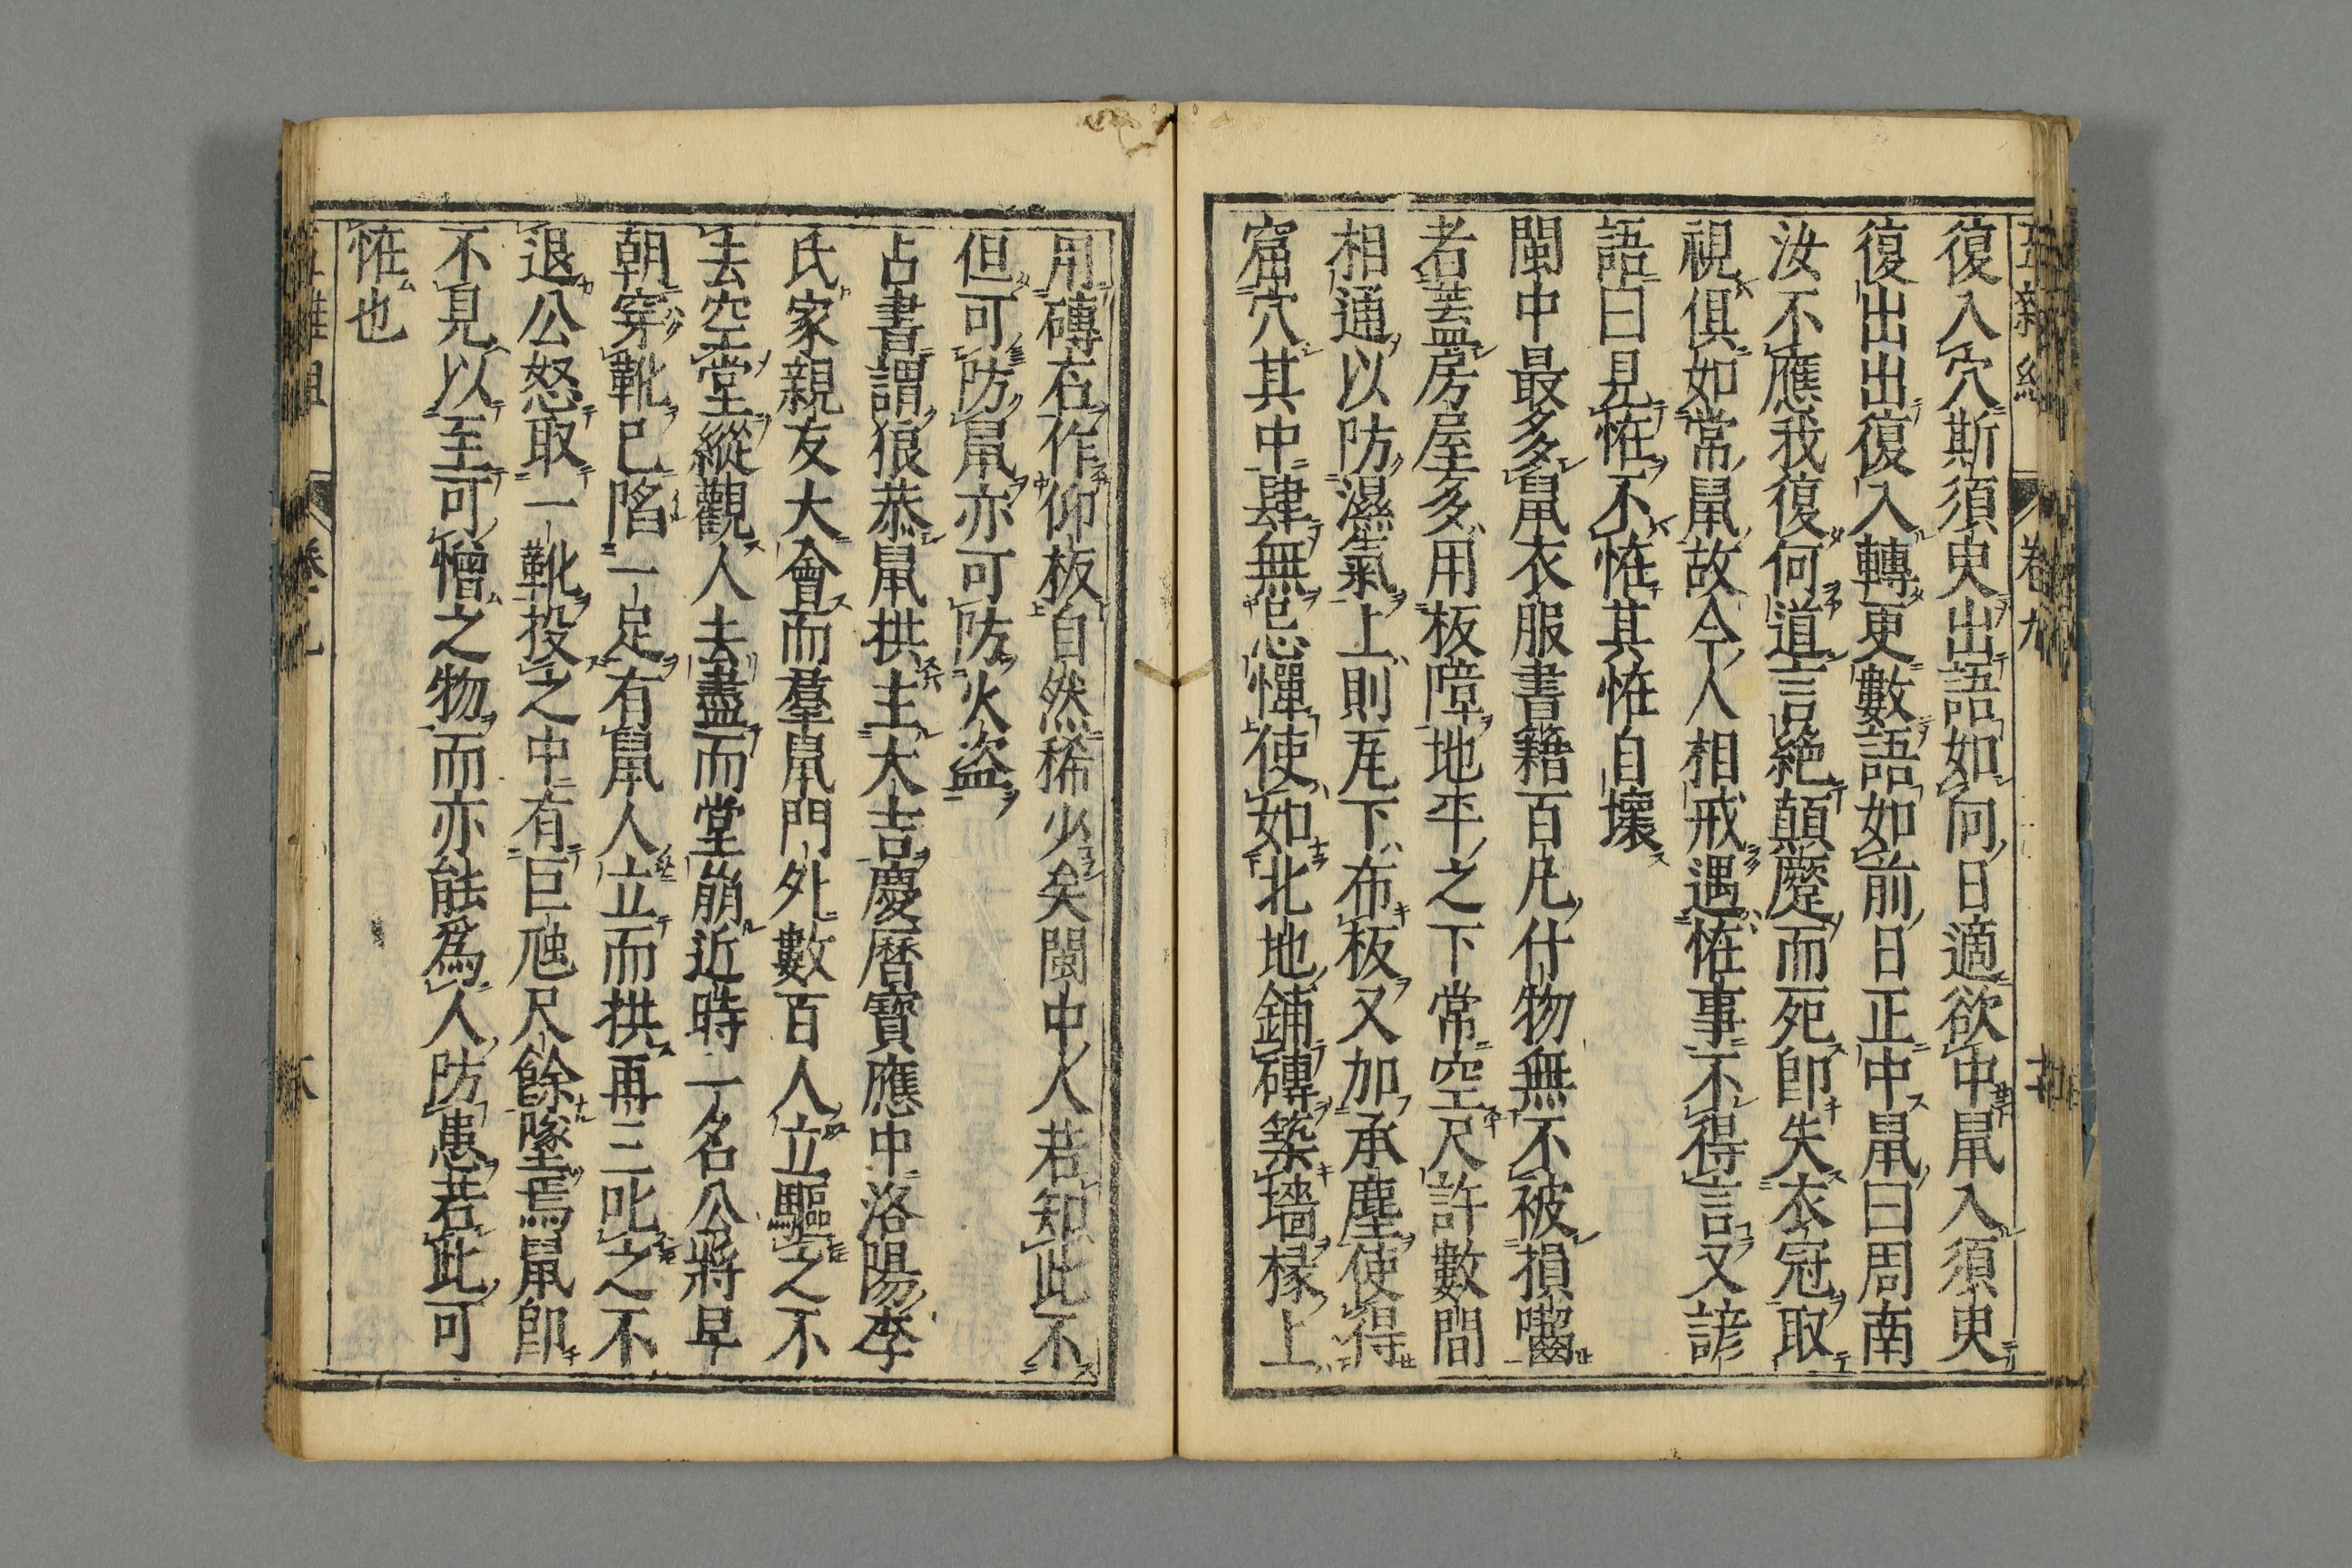 復入穴斯須臾出語如向日適欲中鼠入須臾
復出出復入轉更數語如前日正中鼠曰周南
汝不應我復何道言絕顛蹷而死卽失衣冠取
視俱如常鼠故今人相戒遇恠事不得言又諺
語曰見恠不恠其恠自壞
閩中最多鼠衣服書籍百凡什物無不被損囓
者蓋房屋多用板障地平之下常空尺許數間
相通以防濕氣上則瓦下布板又加承塵使得
窟穴其中肆無忌憚使如北地鋪磚築墻椽上
用磚石作仰板自然稀少矣閩中人若知此不
但可防鼠亦可防火盜
占書謂狼恭鼠拱主大吉慶曆寶應中洛陽李
氏家親友大會而羣鼠門外數百人立驅之不
去空堂縱觀人去盡而堂崩近時一名公將早
朝穿靴已陷一足有鼠人立而拱再三叱之不
退公怒取一靴投之中有巨虺尺餘墜焉鼠卽
不見以至可憎之物而亦能爲人防患若此可
恠也
卷九